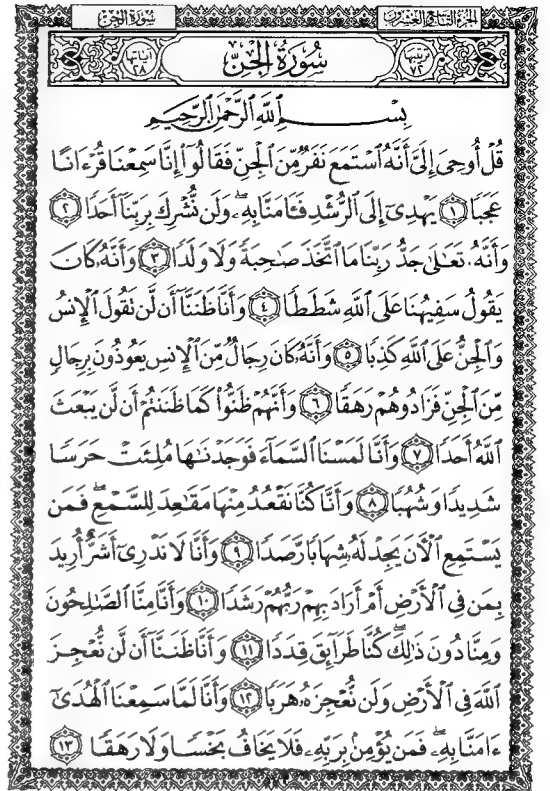 الجزء التاسع والعشرون
سورة الجن
ترتيبها
٧٢
سُورَةُ الْجِنِّ
آياتها
٢٨
بِسْمِ ٱللَّهِ ٱلرَّحْمَٰنِ ٱلرَّحِيمِ
قُلْ أُوحِىَ إِلَىَّ أَنَّهُ ٱسْتَمَعَ نَفَرٌ مِّنَ ٱلْجِنِّ فَقَالُوٓا۟ إِنَّا سَمِعْنَا قُرْءَانًا
عَجَبًا ١ يَهْدِىٓ إِلَى ٱلرُّشْدِ فَـَٔامَنَّا بِهِۦ ۖ وَلَن نُّشْرِكَ بِرَبِّنَآ أَحَدًا ٢
وَأَنَّهُۥ تَعَٰلَىٰ جَدُّ رَبِّنَا مَا ٱتَّخَذَ صَٰحِبَةً وَلَا وَلَدًا ٣ وَأَنَّهُۥ كَانَ
يَقُولُ سَفِيهُنَا عَلَى ٱللَّهِ شَطَطًا ٤ وَأَنَّا ظَنَنَّآ أَن لَّن تَقُولَ ٱلْإِنسُ
وَٱلْجِنُّ عَلَى ٱللَّهِ كَذِبًا ٥ وَأَنَّهُۥ كَانَ رِجَالٌ مِّنَ ٱلْإِنسِ يَعُوذُونَ بِرِجَالٍ
مِّنَ ٱلْجِنِّ فَزَادُوهُمْ رَهَقًا ٦ وَأَنَّهُمْ ظَنُّوا۟ كَمَا ظَنَنتُمْ أَن لَّن يَبْعَثَ
ٱللَّهُ أَحَدًا ٧ وَأَنَّا لَمَسْنَا ٱلسَّمَآءَ فَوَجَدْنَٰهَا مُلِئَتْ حَرَسًا
شَدِيدًا وَشُهُبًا ٨ وَأَنَّا كُنَّا نَقْعُدُ مِنْهَا مَقَٰعِدَ لِلسَّمْعِ ۖ فَمَن
يَسْتَمِعِ ٱلْـَٔانَ يَجِدْ لَهُۥ شِهَابًا رَّصَدًا ٩ وَأَنَّا لَا نَدْرِىٓ أَشَرٌّ أُرِيدَ
بِمَن فِى ٱلْأَرْضِ أَمْ أَرَادَ بِهِمْ رَبُّهُمْ رَشَدًا ١٠ وَأَنَّا مِنَّا ٱلصَّٰلِحُونَ
وَمِنَّا دُونَ ذَٰلِكَ ۖ كُنَّا طَرَآئِقَ قِدَدًا ١١ وَأَنَّا ظَنَنَّآ أَن لَّن نُّعْجِزَ
ٱللَّهَ فِى ٱلْأَرْضِ وَلَن نُّعْجِزَهُۥ هَرَبًا ١٢ وَأَنَّا لَمَّا سَمِعْنَا ٱلْهُدَىٰٓ
ءَامَنَّا بِهِۦ ۖ فَمَن يُؤْمِنۢ بِرَبِّهِۦ فَلَا يَخَافُ بَخْسًا وَلَا رَهَقًا ١٣